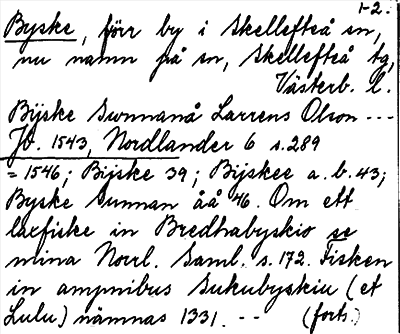 1-2.
Byske, förr by i Skellefteå sn,
nu namn på sn, Skellefteå tg,
Västerb. l.
Bijske Sunnanå Larrens Olson ---
Jb. 1543, Nordlander 6 s. 289
= 1546; Bijske 39; Bijskee a. b. 43;
Byske sunnan åå 46. Om ett
laxfiske in Bredhabyskio se
mina Norrl. Saml. s. 172. Fisken
in ampnibus Sukubyskiu (et
Lulu) nämnas 1331. -- (forts.)